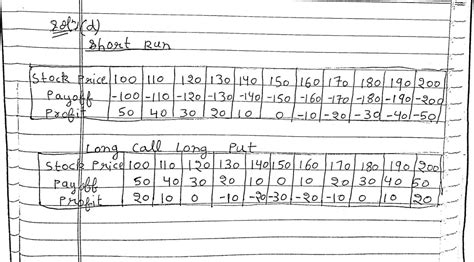 Solⁿ(d)
Short Run
Stock Price 100 110 120 130 140 150 160 170 180 190 200
Payoff -100 -110 -120 -130 -140 -150 -160 -170 -180 -190 -200
Profit 50 40 30 20 10 0 -10 -20 -30 -40 -50
Long Call Long Put
Stock Price 100 110 120 130 140 150 160 170 180 190 200
Pay off 50 40 30 20 10 0 10 20 30 40 50
Profit 20 10 0 -10 -20 -30 -20 -10 0 10 20